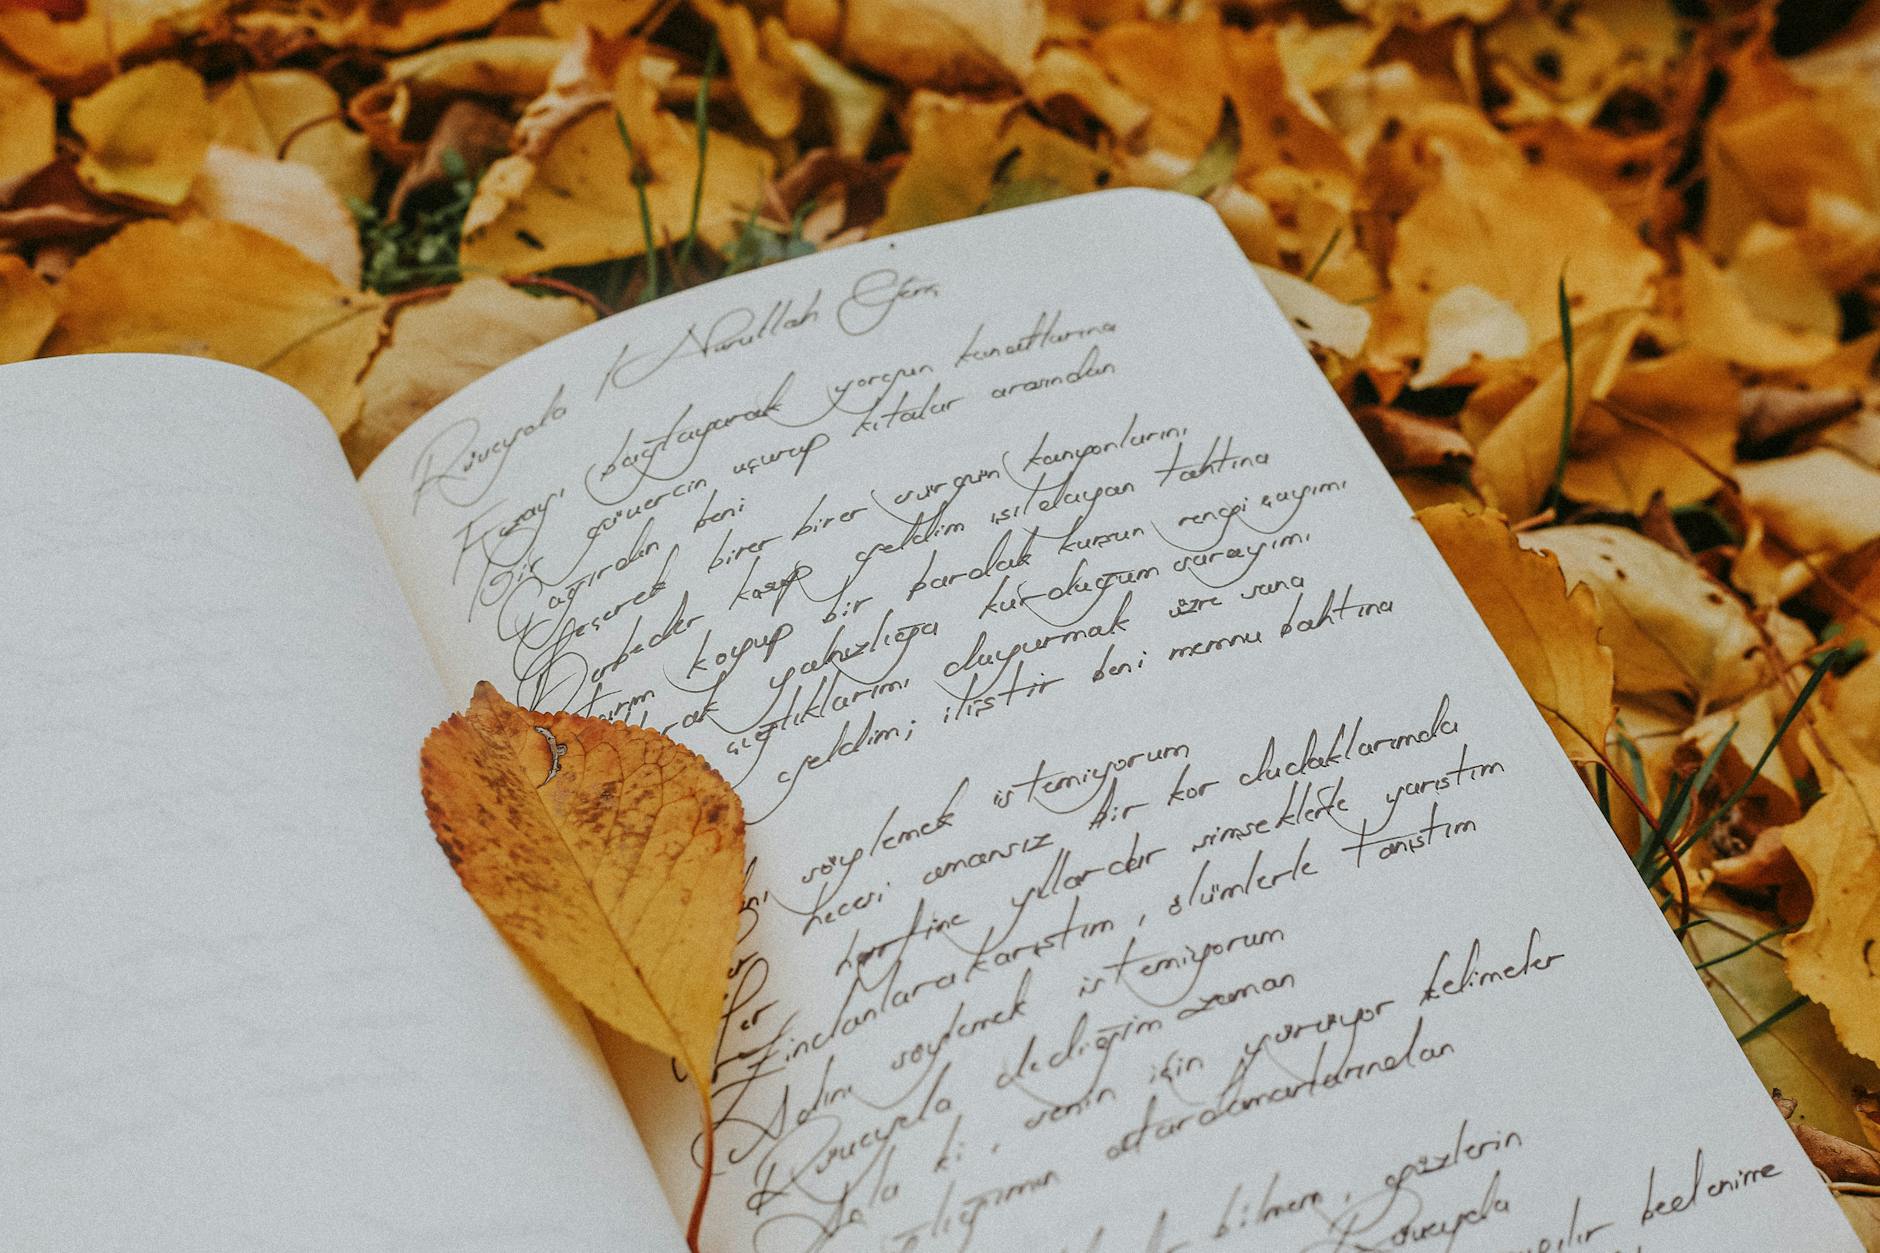 Rüveyda / Nurullah Genç
Fezayı bağlayarak yorgun kanatlarına
Bir güvercin uçurup kıtalar arasından
Çağırdın beni
Geçerek birer birer sürgün kanyonlarını
Derbeder koşup geldim ışıldayan tahtına
koyup bir bardak kurşun rengi çayımı
yalnızlığa kurduğum sarayımı
çığlıklarımı duyurmak üzre sana
geldim; iliştir beni memnu bahtına
söylemek istemiyorum
hecesi amansız bir kor dudaklarımda
harfine yıllardır şimşeklerle yarıştım
Zindanlara karıştım, ölümlerle tanıştım
Adını söylemek istemiyorum
Rüveyda dediğim zaman
ki, senin için yürüyor kelimeler
atardamarlarından
bilmem, gözlerin
Rüveyda
bedenime